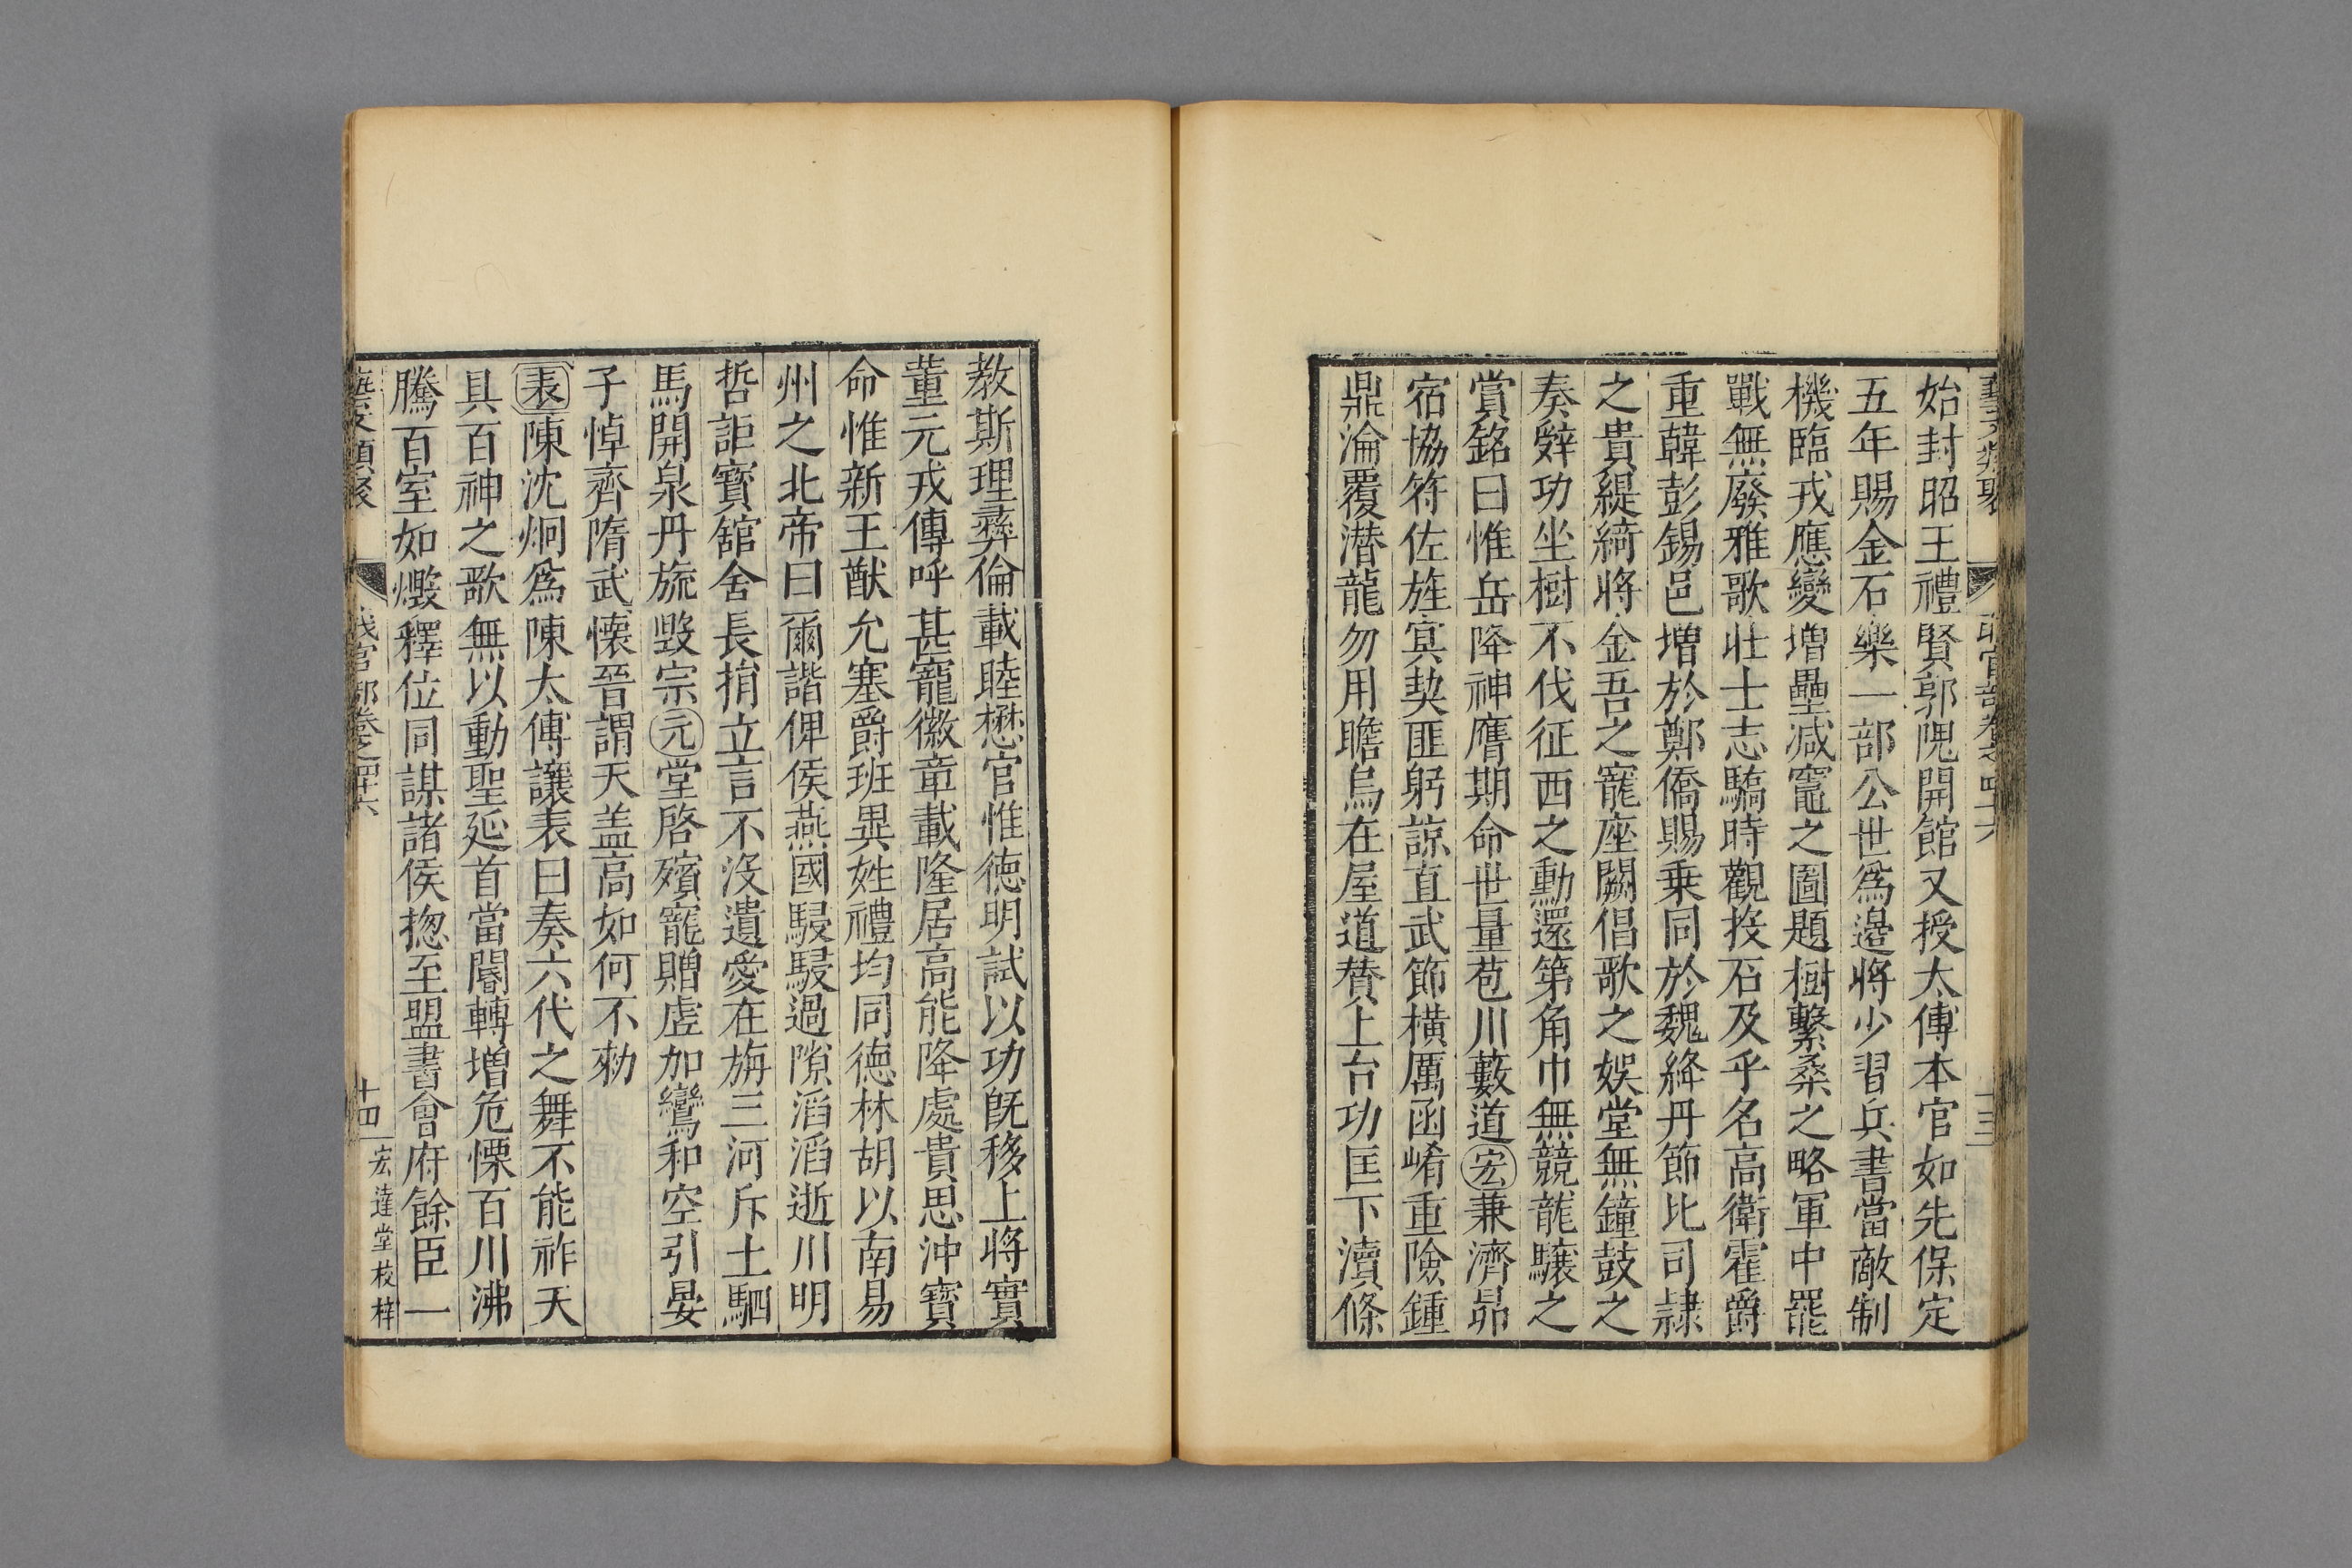 藝文類聚 職官部卷之四十六 十三
始封昭王禮賢郭隗開館又授太傅本官如先保定
五年賜金石樂一部公世爲邉將少習兵書當敵制
機臨戎應變增壘減竈之圖題樹繫桑之略軍中罷
戰無廢雅歌壯士志驕時觀投石及乎名高衛霍爵
重韓彭錫邑增於鄭僑賜乗同於魏絳丹節比司隷
之貴緹綺將金吾之寵座闕倡歌之娛堂無鐘鼓之
奏辤功坐樹不伐征西之勳還第角巾無競龍驤之
賞銘曰惟岳降神膺期命世量苞川藪道宏兼濟昴
宿協符佐旌㝠契匪躬諒直武節橫厲函崤重險鍾
鼎淪覆潜龍勿用瞻烏在屋道賛上台功匡下瀆條
教斯理彞倫載睦懋官惟德明試以功旣移上將實
董元戎傳呼甚寵徽章載隆居高能降處貴思沖寶
命惟新王猷允塞爵班異姓禮均同德林胡以南易
州之北帝曰爾諧俾侯燕國駸駸過隙滔滔逝川明
哲詎寳舘舍長捐立言不沒遺愛在旃三河斥土駟
馬開泉丹旐毀宗元堂啓殯寵贈虛加鸞和空引晏
子悼齊隋武懷晉謂天盖高如何不勑
表陳沈炯爲陳太傅讓表曰奏六代之舞不能祚天
具百神之歌無以動聖延首當閽轉增危慄百川沸
騰百室如燬釋位同謀諸侯揔至盟書會府餘臣一
藝文類聚 職官部卷之四十六 十四 宏達堂校梓